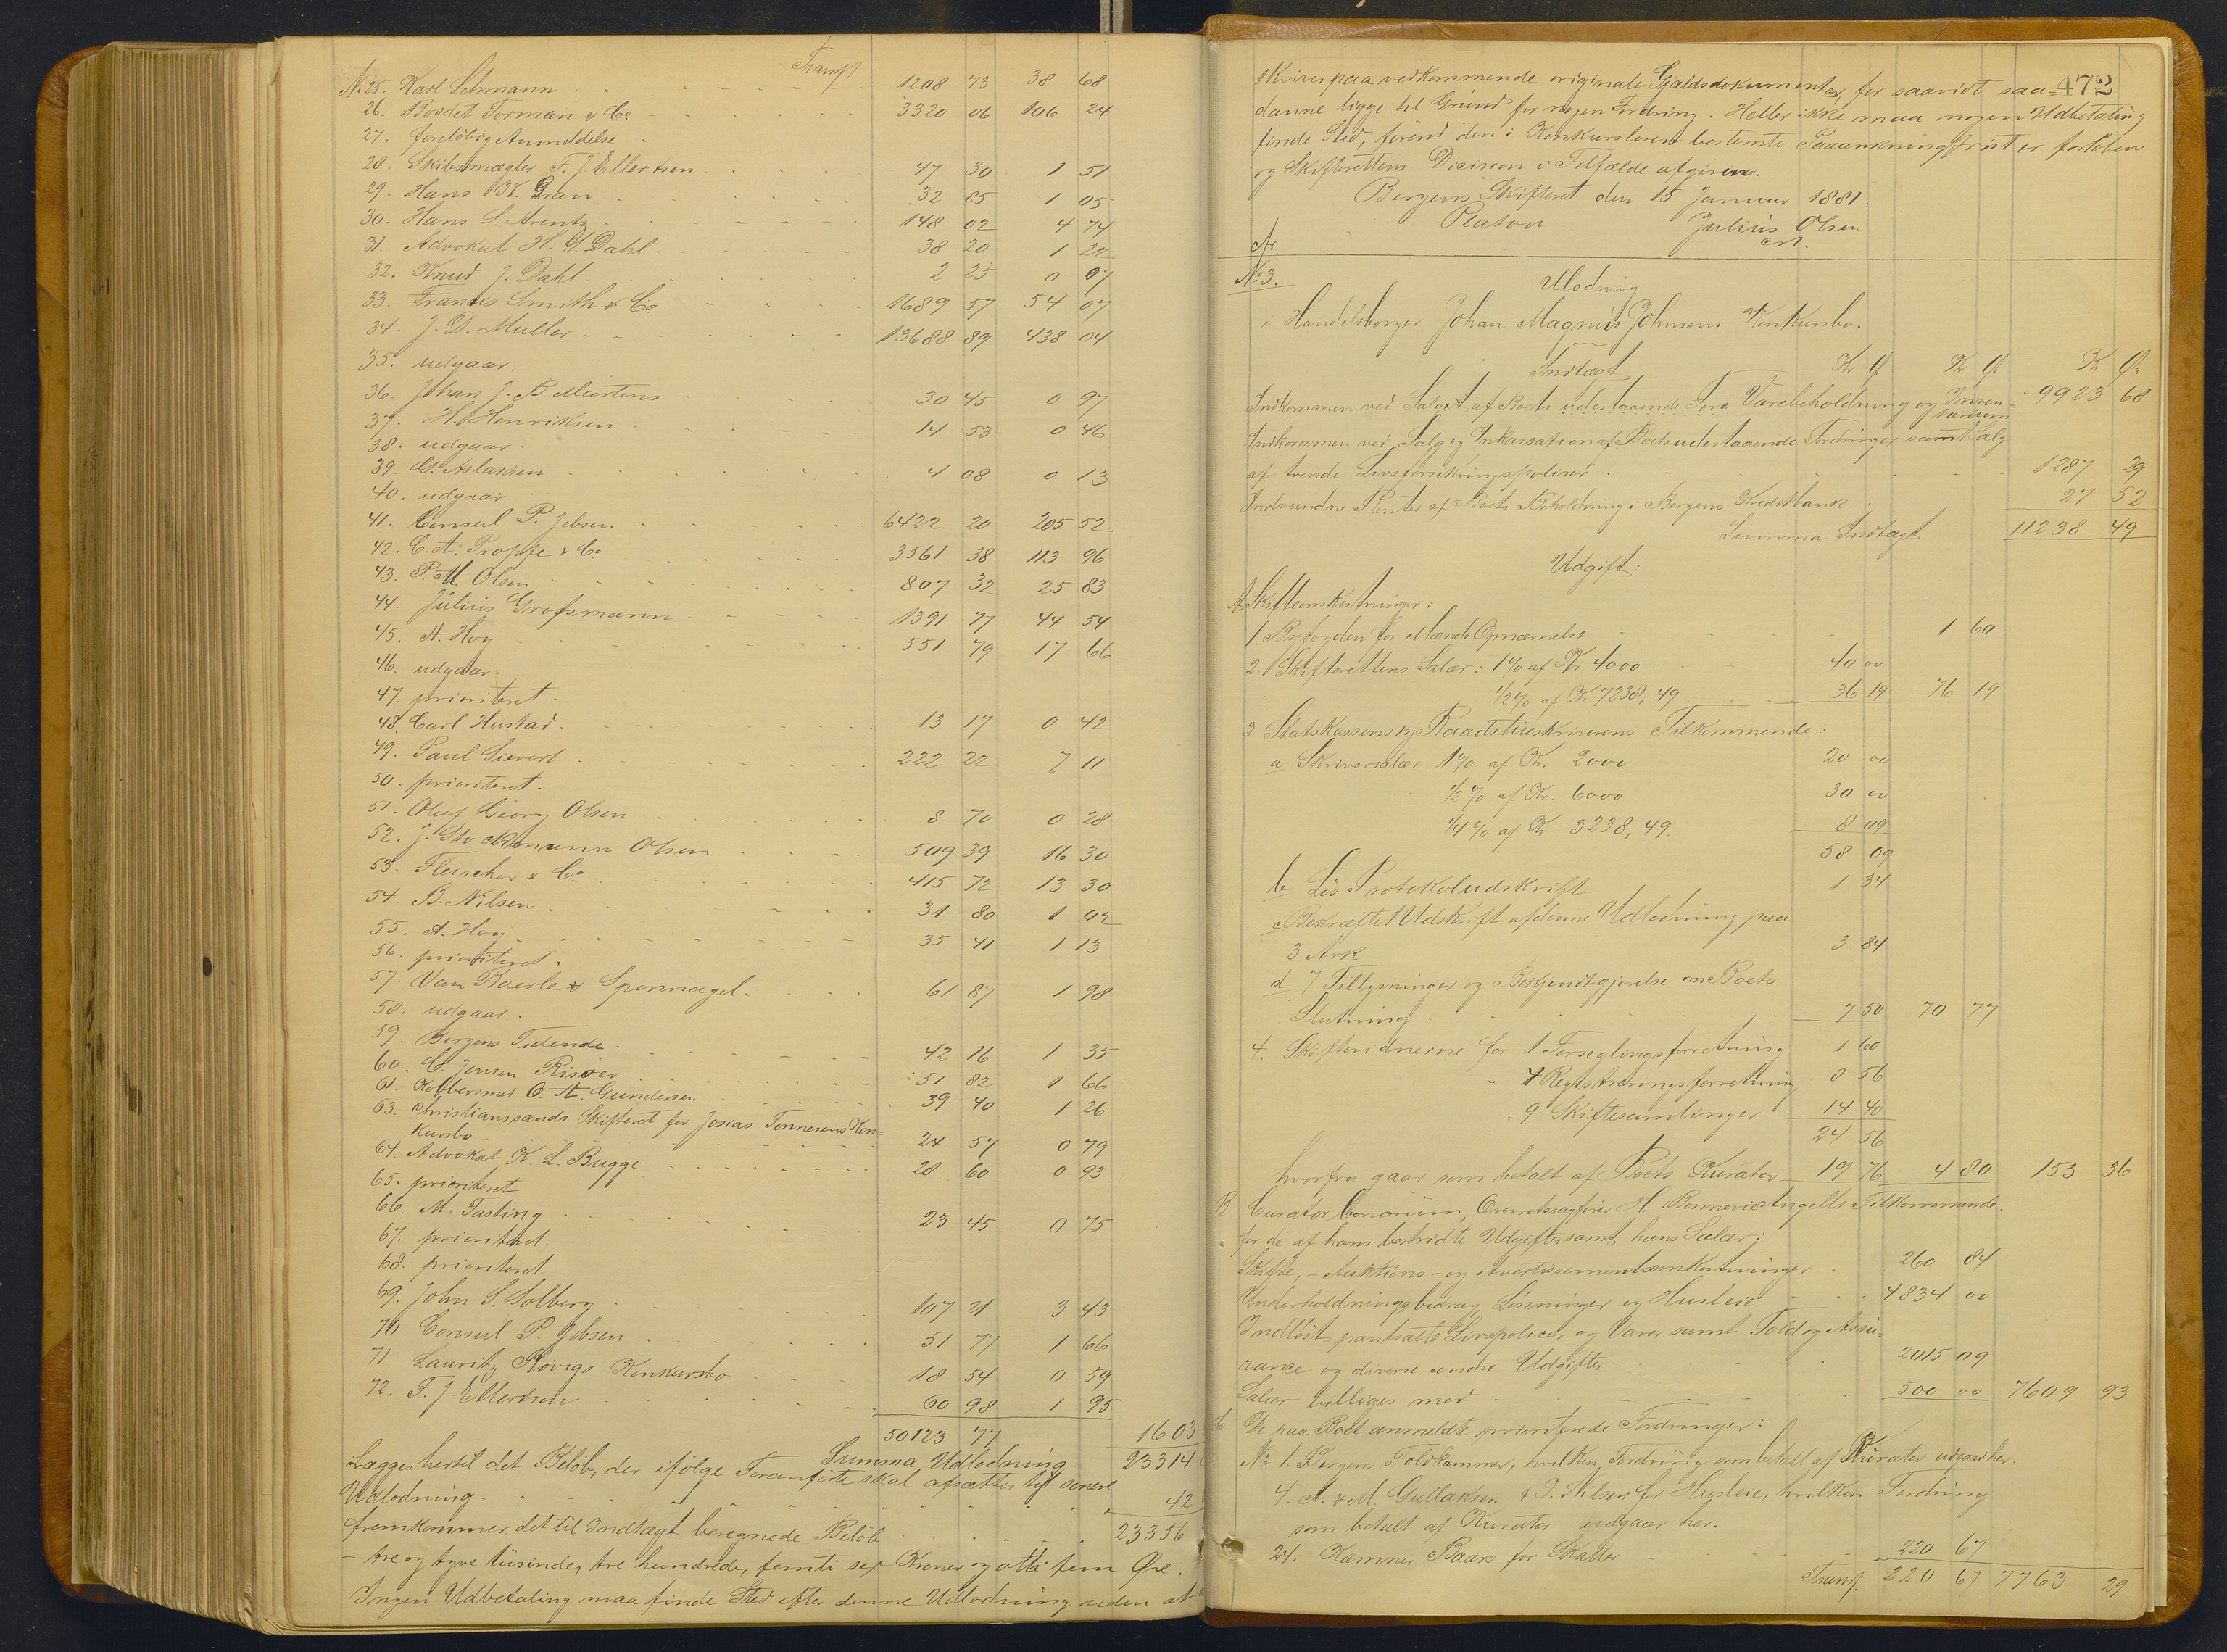 Transp.
No 25. Karl Lehmann 1208 73 38 68
26. Bordet Forman & Co 3320 06 106 24
27. foreløbig Anmeldelse
28. Skibsmægler F. J Ellertsen 47 30 1 51
29. Hans Kr. Gran 32 85 1 05
30. Hans S. Arentz 148 02 4 74
31. Advokat H. G Dahl 38 20 1 22
32. Knud J. Dahl 2 25 0 07
33. Francis Smith & Co 1689 57 54 07
34. J. D. Muller 13688 89 438 04
35. udgaar.
36. Johan J. B. Martens 30 45 0 97
37. H. Henriksen 14 53 0 46
38. udgaar.
39. Aslaksen 4 08 0 13
40. udgaar
41. Consul P. Jebsen 6422 20 205 52
42. C. A. Proppe & Co 3561 38 113 96
43. P. M. Olsen 807 32 25 83
44. Julius Grofsmann 1391 77 44 54
45. A. Hoy 551 79 17 66
46. udgaar.
47. prioriteret.
48. Carl Hustad 13 17 0 42
49. Paul Sievert 222 22 7 11
50. prioriteret.
51. Oluf Georg Olsen 8 70 0 28
52. J. Stockmann Olsen 509 39 16 30
53. Fleischer & Co 415 72 13 30
54. B. Nilsen 31 80 1 02
55. A. Hoy 35 41 1 13
56. prioriteret.
57. Van Baerle & Sponnagel 61 87 1 98
58. udgaar.
59. Bergens Tidende 42 16 1 35
60. C. Jensen Risöer 51 82 1 66
61. Kobbersmed O. A. Gundersen 39 40 1 26
63. Christianssands Skifteret for Josias Tonnesens Kon=
kursbo 24 57 0 79
64. Advokat K. L. Bugge 28 60 0 93
65. prioriteret
66. M. Tasting 23 45 0 75
67. prioriteret.
68. prioriteret.
69. John S. Solberg 107 21 3 43
70. Consul P. Jebsen 51 77 1 66
71. Lauritz Rövigs Konkursbo 18 54 0 59
72. F. J Ellertsen 60 98 1 95
50123 77 1603
Summa Udlodning 23314
Lægges hertil det Beløb, der ifølge Foranførte skal afsættes til senere
Udlodning 42
fremkommer det til Indtægt beregnede Beløb 23356
- tre og tyve tusinde, tre hundrede, femti sex Kroner og otti fem Øre.
Ingen Udbetaling maa finde Sted efter denne Udlodning uden at
472
skrives paa vedkommende originale Gjældsdokumenter, for saavidt saa=
danne ligge til Grund for nogen Fordring. Heller ikke maa nogen Udbetaling
finde Sted, førend den i Konkursloven bestemte Paaankningsfrist er forløben
og Skifterettens Decision i Tilfælde afgiven.
Bergens Skifteret den 15 Januar 1881.
Platou Julius Olsen
cst.
No 3.
Udlodning
i Handelsborger Johan Magnus Johnsens Konkursbo.
Indtægt Kr Ør Kr Ør Kr Ør
Indkommen ved Salget af Boets udestaaende Varebeholdning og Inven=
tarium 9923 68
Indkommen ved Salg og Inkassation af Boets udestaaende Fordringer samt Salg
af tvende Livsforsikringspoliser 1287 29
Indvundne Renter af Boets Beholdning i Bergens Kreditbank 27 52
Summa Indtægt 11238 49
Udgift:
A. Skifteomkostninger:
1. Byfogden for Mænds Opnævnelse 1 60
2. Skifterettens Salær: 1% af Kr 4000 40 00
1/2% af Kr 7238,49 36 19 76 19
3 Statskassens og Raadstueskriverens Tilkommende:
a Skriversalær 1% af Kr. 2000 20 00
1/2% af Kr. 6000 30 00
1/4% af Kr 3238,49. 8 09
58 09
b Løs Protokoludskrift 1 34
c Bekræftet Udskrift af denne Udlodning paa
3 Ark 3 84
d 7 Tillysninger og Bekjendtgjørelse om Boets
Slutning 7 50 70 77
4. Skiftevidnerne for 1 Forseglingsforretning 1 60
" 4 Registreringsforretning 8 56
" 9 Skiftesamlinger 14 40
24 56
hvorfra gaar som betalt af Boets Kurator 19 76 4 80 153 36
B. Curator bonorum, Overretssagfører H. Angells Tilkommende.
for de af ham bestridte Udgifter samt hans Salær:
Skifte,- Auktions- og Avertissementsomkostninger 260 84
Underholdningsbidrag, Lønninger og Husleie 4834 00
Indløst pantsatte Livspolicer og Varer samt Told og Assu=
rance og diverse andre Udgifter 2015 09
Salær billiges med 500 00 7609 93
C De paa Boet anmeldte prioriterede Fordringer:
No 1. Bergens Toldkammer, hvilken Fordring som betalt af Kurator udgaar her.
4. A. & M. Gullaksen & J. Nilsen for Husleie, hvilken Fordring
som betalt af Kurator udgaar her.
24. Kæmner Baars for Skatter 220 67
Transp. 220 67 7763 29